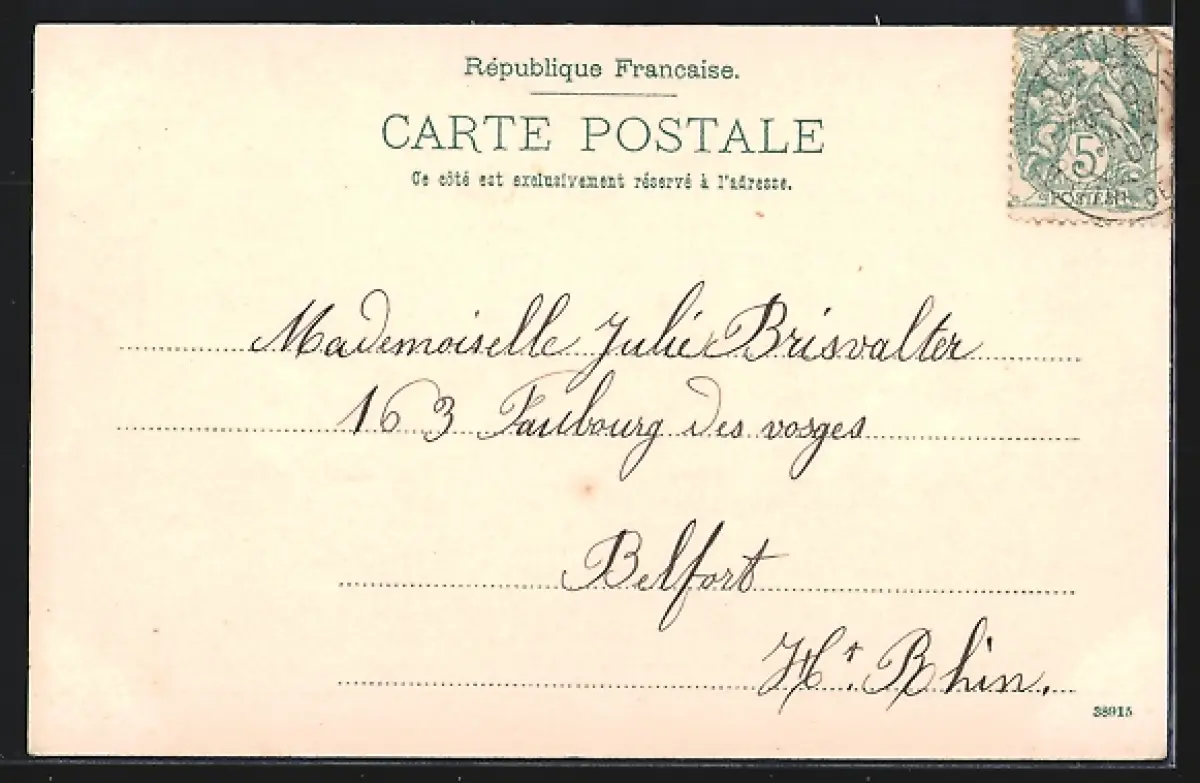 République Francaise.
CARTE POSTALE
Ce côté est exclusivement réservé à l'adresse.
5
POSTES
Mademoiselle Julie Brisvalter
163 Faubourg des vosges
Belfort
Ht. Rhin.
38915